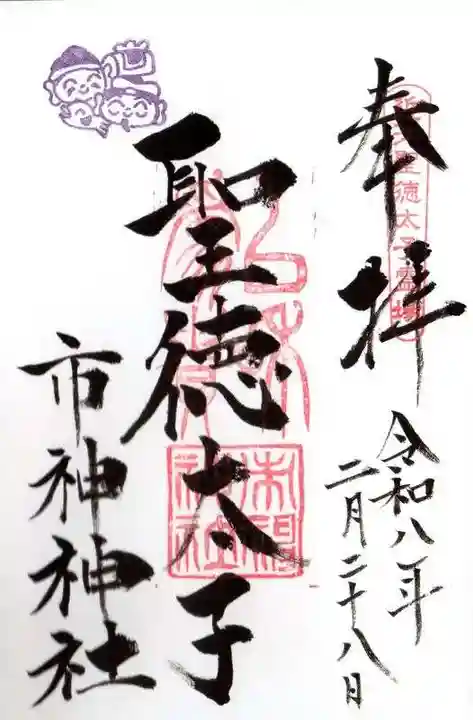 奉拝
令和八年
二月二十八日
聖徳太子
市神神社
聖徳太子霊場